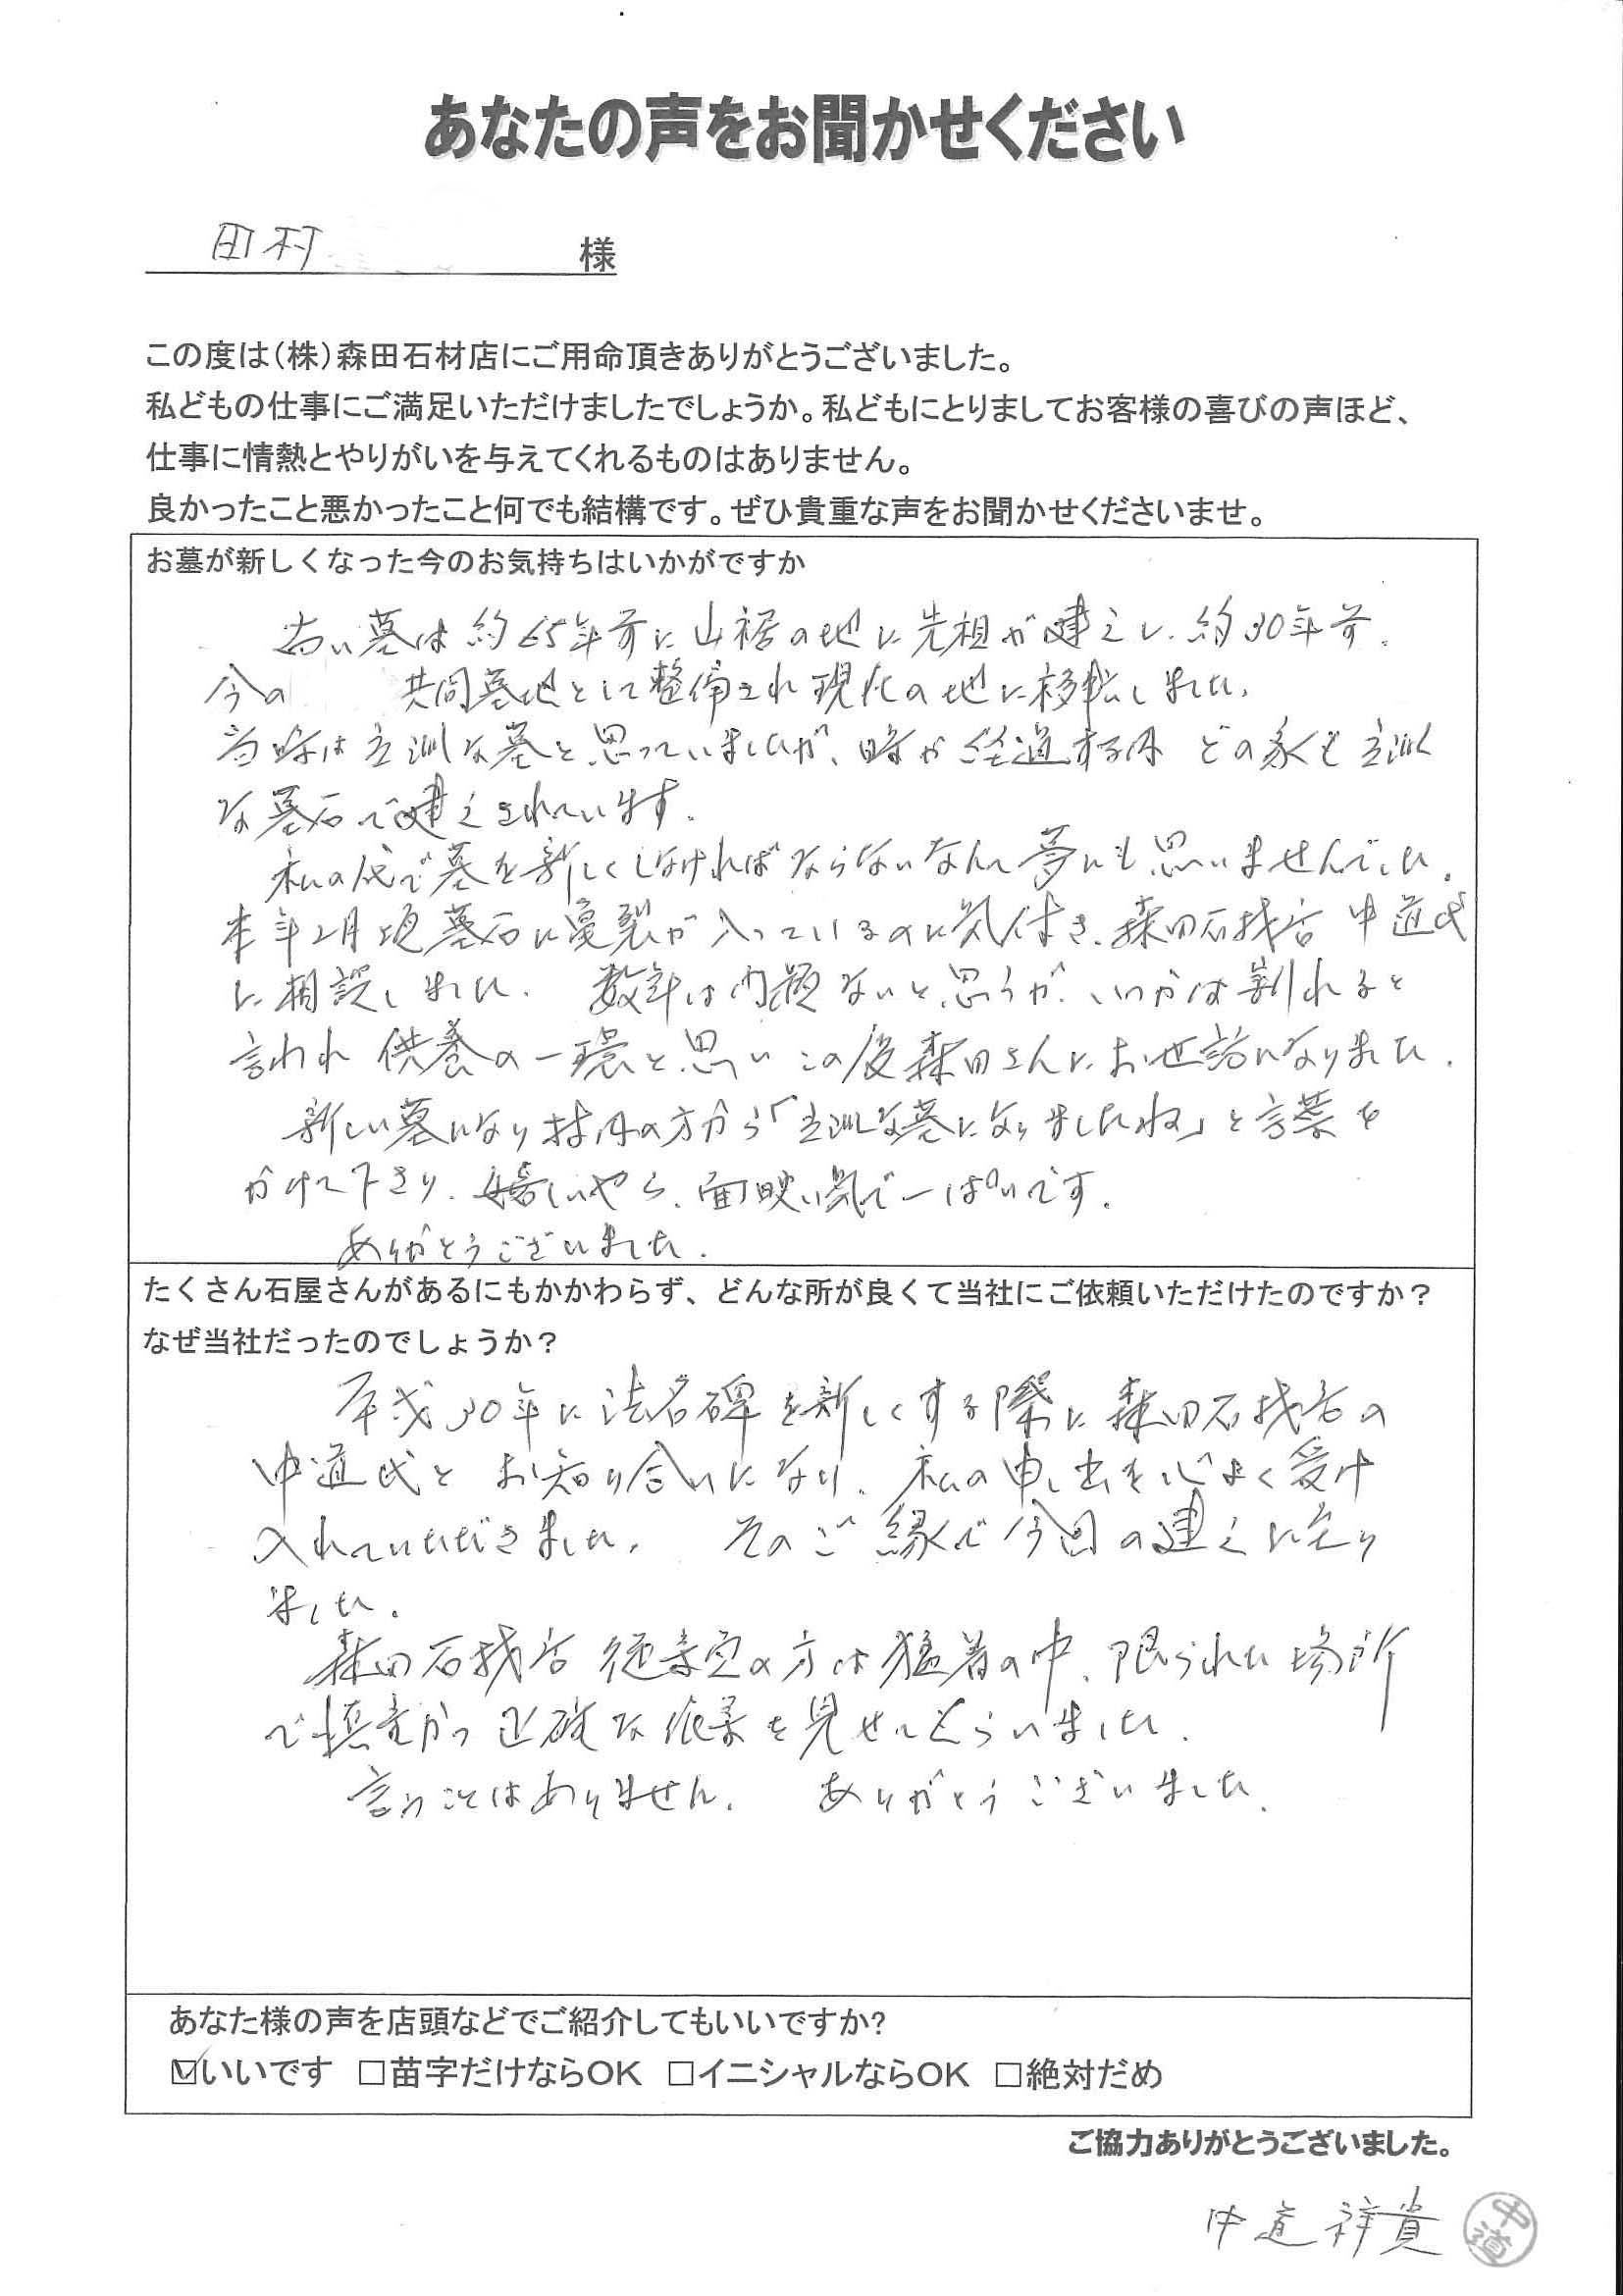 あなたの声をお聞かせください
田村 様
この度は（株）森田石材店にご用命頂きありがとうございました。
私どもの仕事にご満足いただけましたでしょうか。私どもにとりましてお客様の喜びの声ほど、
仕事に情熱とやりがいを与えてくれるものはありません。
良かったこと悪かったこと何でも結構です。ぜひ貴重な声をお聞かせくださいませ。
お墓が新しくなった今のお気持ちはいかがですか
古い墓は約65年前に山裾の地に先祖が建立し、約30年前、
今の 共同墓地として整備され現在の地に移転しました。
当時は立派な墓と思っていましたが、時が経過する内 どの家も立派
な墓石で建立されています。
私の代で墓を新しくしなければならないなんて夢にも思いませんでした。
本年2月頃墓石に亀裂が入っているのに気付き、森田石材店 中道氏
に相談しました。 数年は問題ないと思うが、いつかは割れると
言われ 供養の一環と思い この度森田さんにお世話になりました。
新しい墓になり村内の方から「立派な墓になりましたね」と言葉を
かけて下さり、嬉しいやら、面映い気で一ぱいです。
ありがとうございました。
たくさん石屋さんがあるにもかかわらず、どんな所が良くて当社にご依頼いただけたのですか？
なぜ当社だったのでしょうか？
平成30年に法名碑を新しくする際に森田石材店の
中道氏と お知り合いになり、私の申し出を心よく受け
入れていただきました。 そのご縁で今回の建立に至り
ました。
森田石材店 従業員の方は猛暑の中、限られた場所
で慎重かつ正確な作業を見せてもらいました。
言うことはありません。 ありがとうございました。
あなた様の声を店頭などでご紹介してもいいですか?
☑いいです □苗字だけならOK □イニシャルならOK □絶対だめ
ご協力ありがとうございました。
中道 祥貴 中道